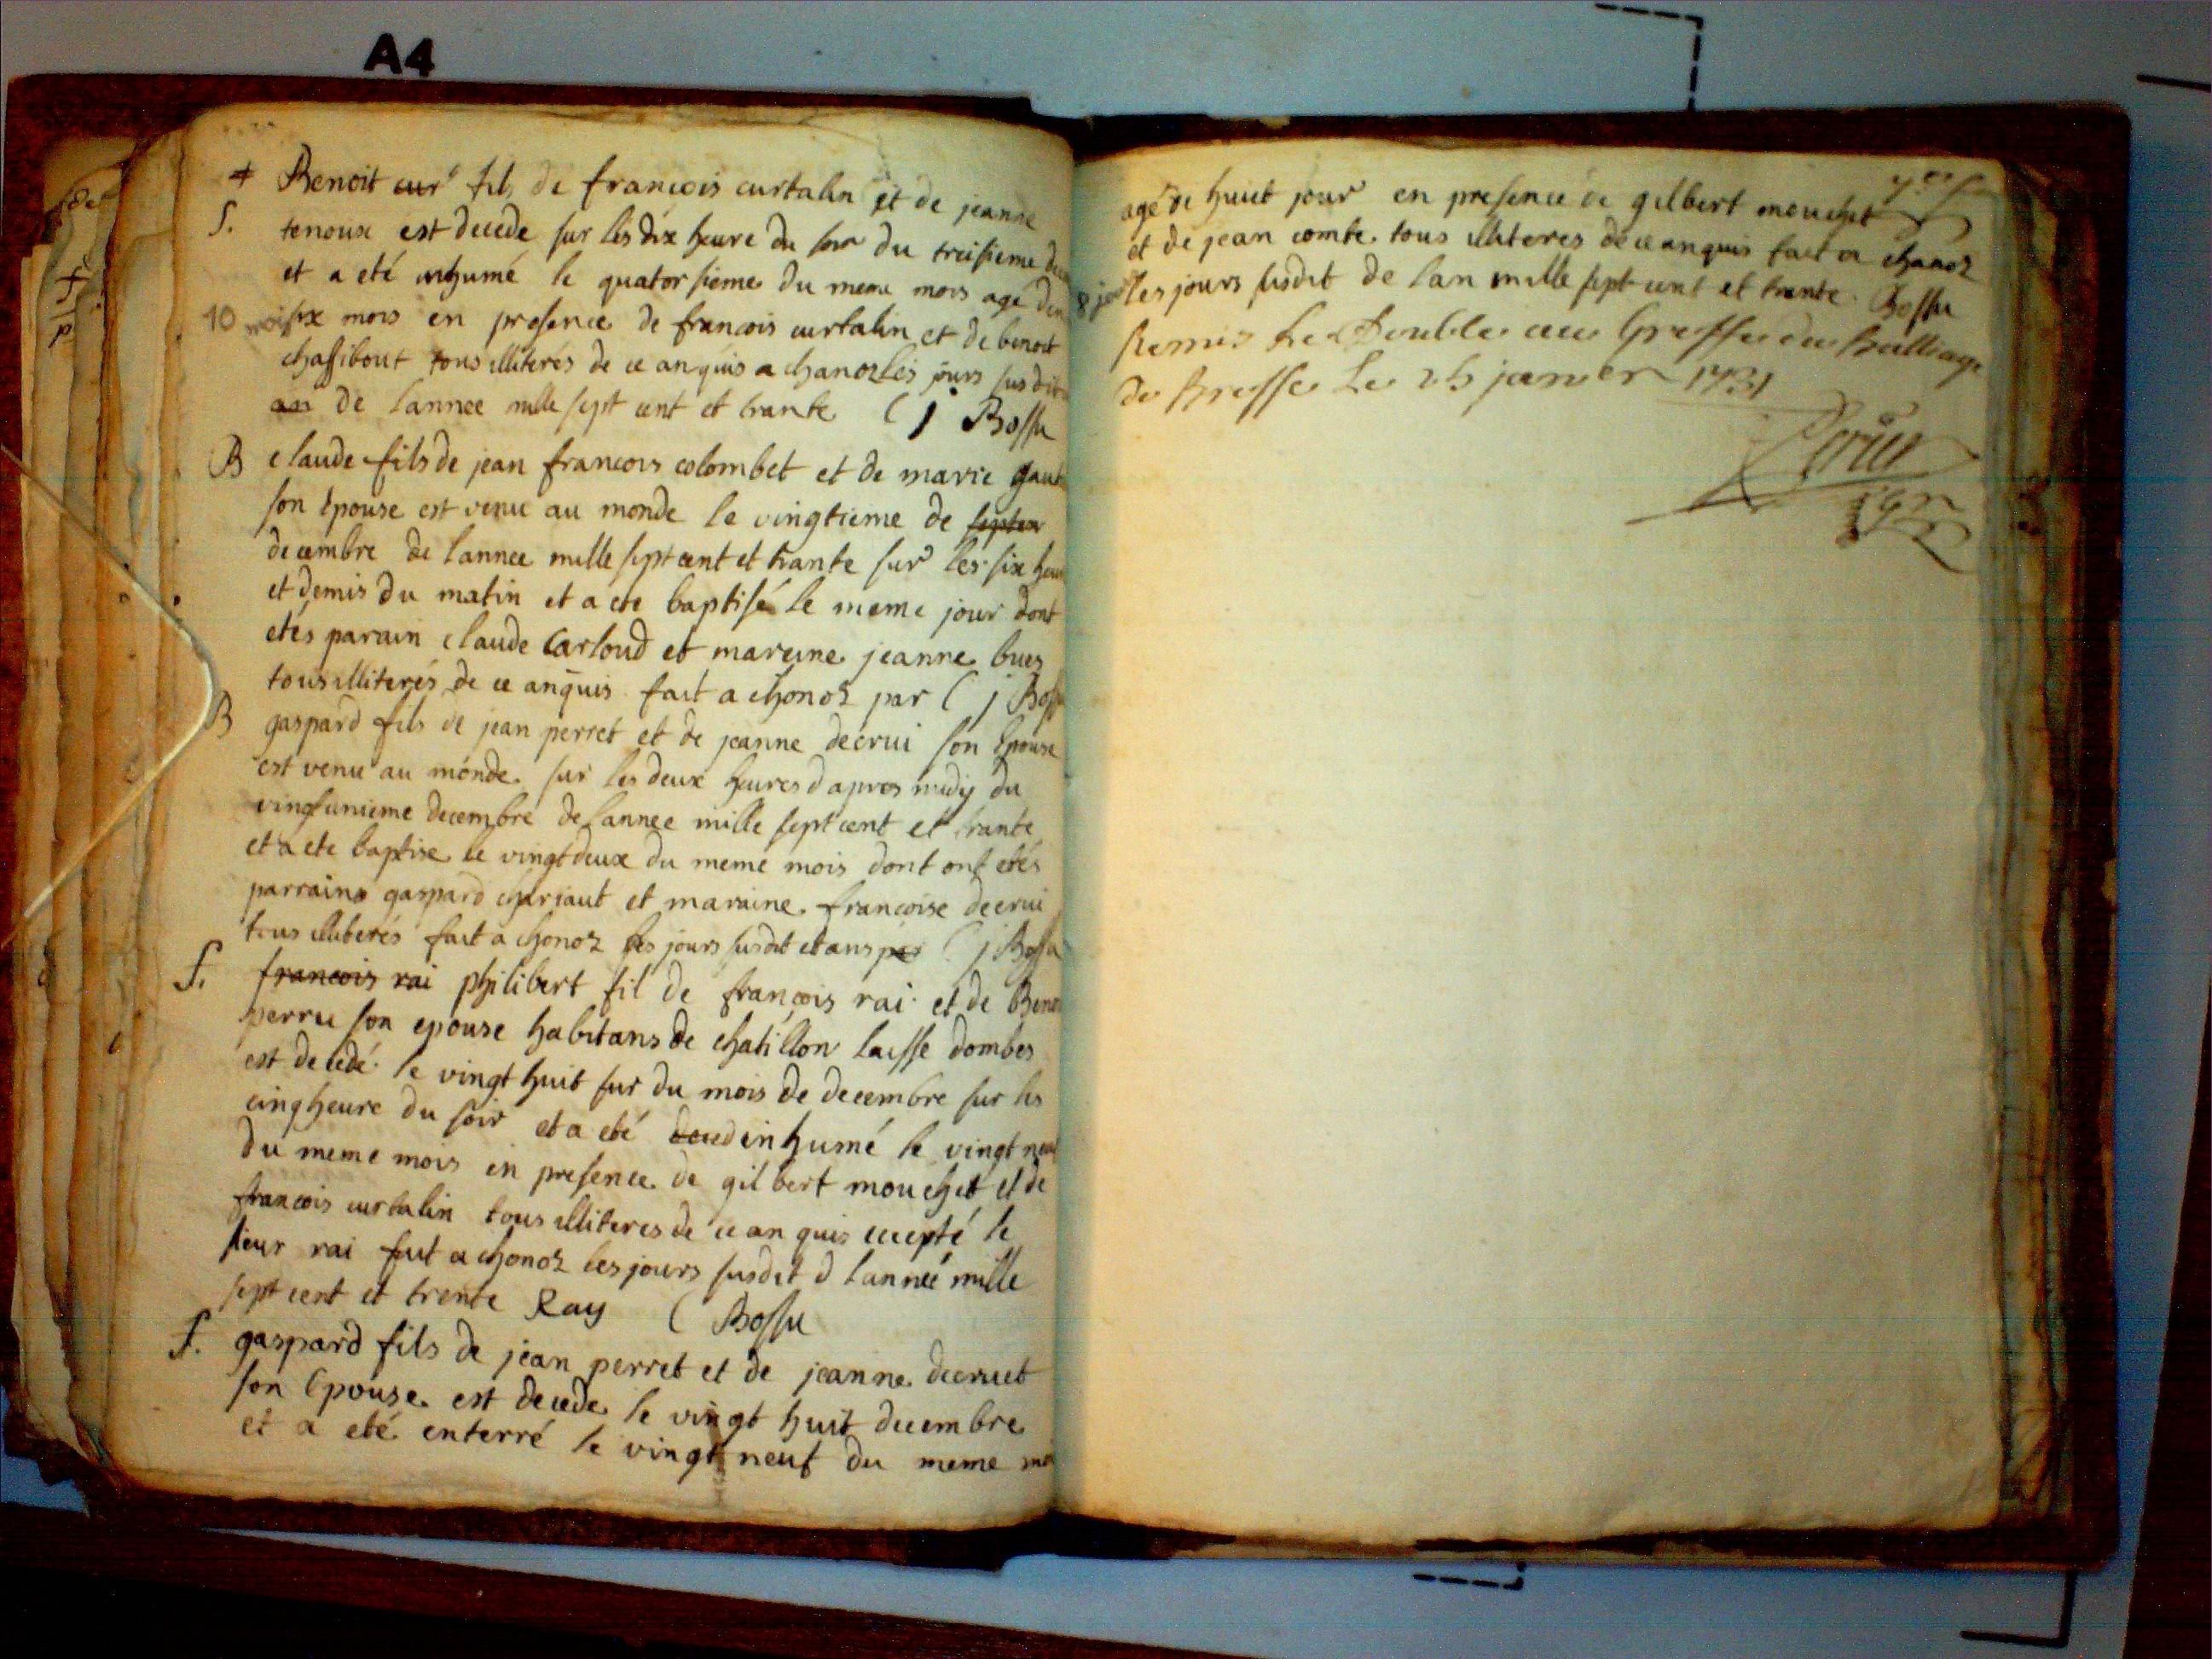 A4
Benoit fil de francois curtalin et de jeanne
S. tenoux est decede sur les dix heure du soir du treisieme
et a eté inhumé le quatorsieme du meme mois agé
10 mois six mois en presence de francois curtalin et de benoit
chassibout tous illiterés de ce anquis a chanoz les jours susdit
de lannee mille sept cent et trante C j Bossu
B claude fils de jean francois colombet et de marie
son epouse est venu au monde le vingtieme de septem
decembre de lannee mille sept cent et trante sur les six
et demis du matin et a ete baptisé le meme jour dont
etés parain claude Carloud et mareine jeanne bues
tous illiterés de ce anquis fait a chonoz par C j Bossu
B gaspard fils de jean perret et de jeanne decrui son epouse
est venu au monde sur les deux heures d apres midy du
vingt unieme decembre de lannee mille sept cent et trante
et a ete baptise le vingt deux du meme mois dont ont etés
parrains gaspard chariaut et maraine francoise decrui
tous illiterés fait a chonoz les jours susdit et ans par C j Bossu
S. francois rai philibert fil de francois rai et de
perru son epouse habitans de chatillon laisse dombes
est decedé le vingt huit sur du mois de decembre sur les
cinq heure du soir et a eté deced inhumé le vingt neuf
du meme mois en presence de gilbert mouchet et de
francois curtalin tous illiteres de ce an quis ecepté le
sieur rai fait a chonoz les jours susdit d lanneé mille
sept cent et trente Ray C Bossu
S. gaspard fils de jean perret et de jeanne decruet
son epouse est decede le vingt huit decembre
et a eté enterré le vingt neuf du meme
agé de huict jour en presence de gilbert mouchet
et de jean comte tous illiteres de ce anquis fait a chanoz
8 jour les jours susdit de lan mille sept cent et trante Bossu
Remis Le Double au Greffe du Balliage
de Bresse Le 25 janvier 1731